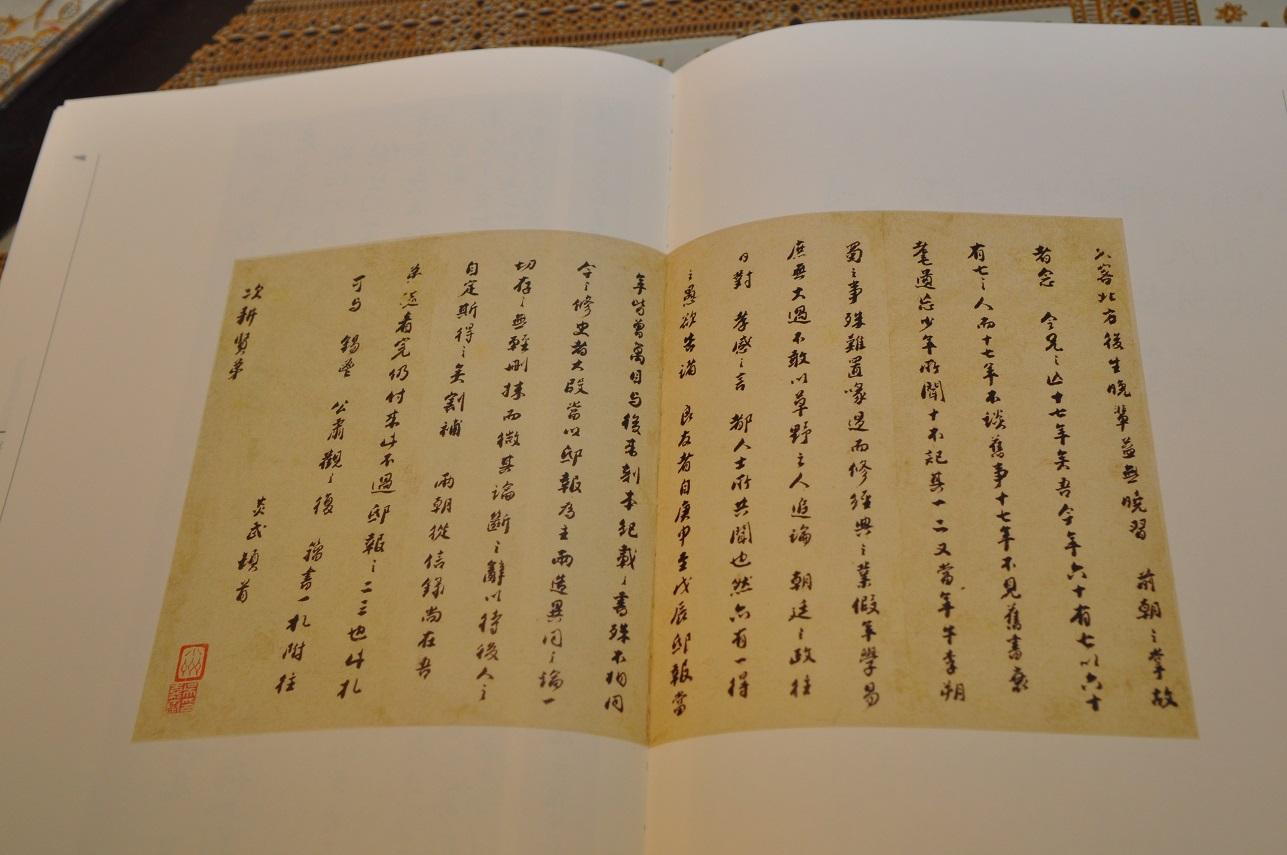 久客北方後生晚輩益無曉習　前朝之掌故
者念　令兄之亡十七年矣吾今年六十有七以六十
有七之人而十七年不談舊事十七年不見舊書衰
耄遺忘少年所聞十不記其一二又當年牛李朔
蜀之事殊難置喙退而修經典之業假年學易
庶無大過不敢以草野之人追論　朝廷之政往
日對　孝感之言　都人士所共聞也然亦有一得
之愚欲告諸　良友者自庚申至戊辰邸報當
年皆曾寓目与後來刻本紀載之書殊不相同
今之修史者大段當以邸報為主兩造異同之論一
切存之無輕刪抹而微其論斷之辭以待後人之
自定斯得之矣割補　兩朝從信錄尚在吾
弟處看完仍付來此不過邸報之二三也此札
可与　錫鬯　公肅觀之復　箱書一札附往
炎武頓首
次耕賢弟